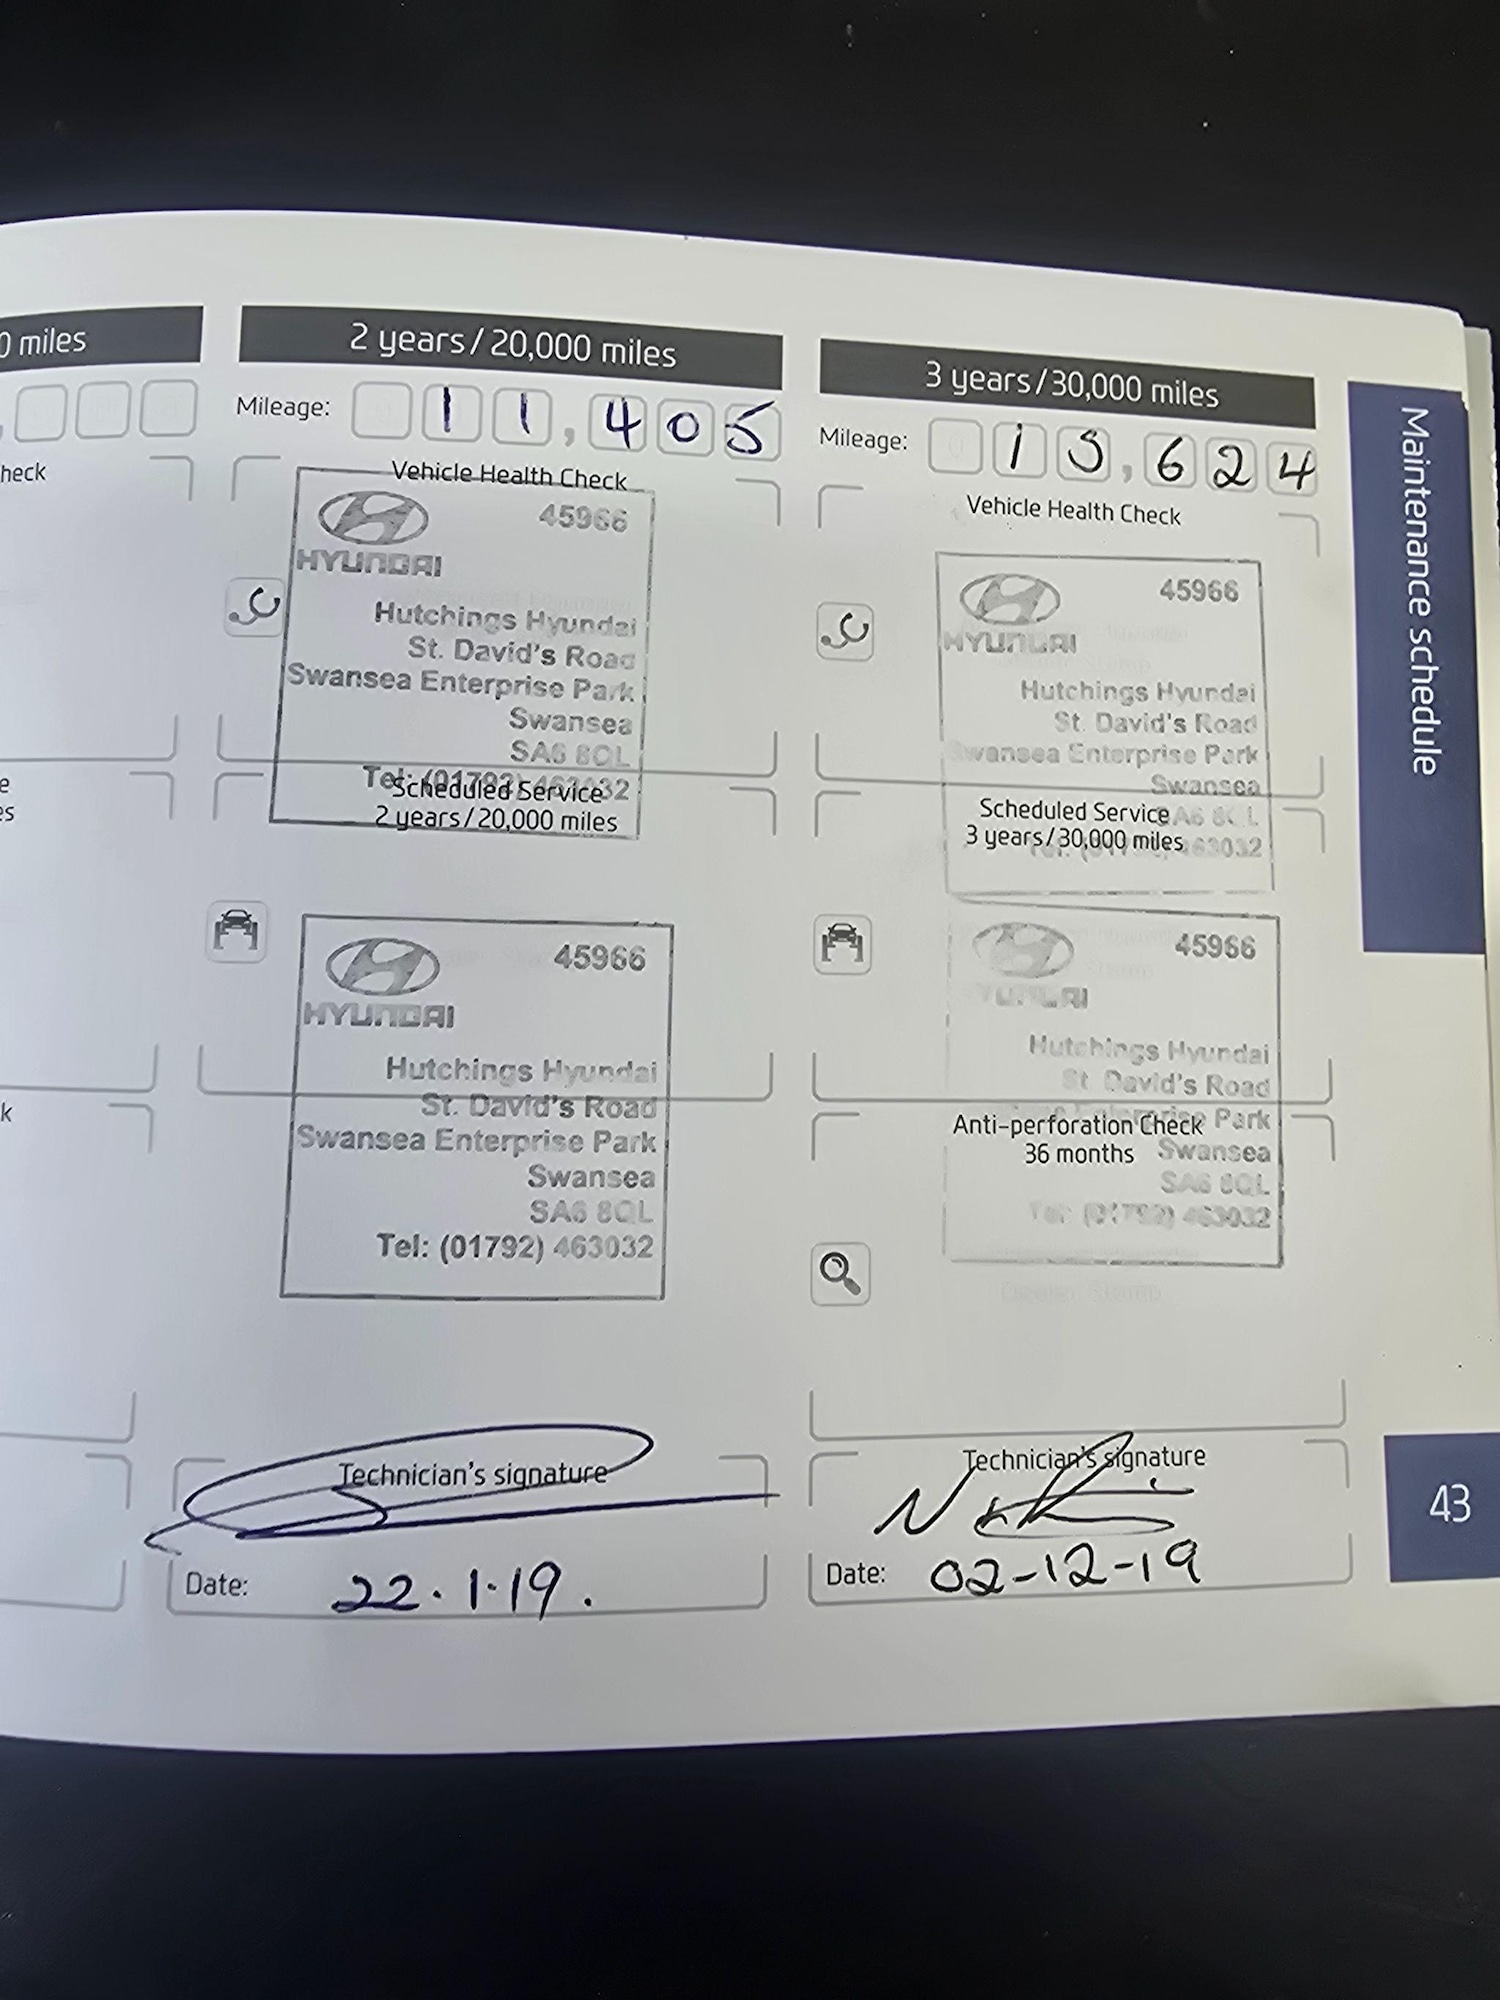 0 miles
heck
e
es
k
2 years / 20,000 miles
Mileage: 11,405
Vehicle Health Check
45966
HYUNDAI
Hutchings Hyundai
St. David's Road
Swansea Enterprise Park
Swansea
SA6 8QL
Tel: (01792) 463032
Scheduled Service
2 years/20,000 miles
45966
HYUNDAI
Hutchings Hyundai
St. David's Road
Swansea Enterprise Park
Swansea
SA6 8QL
Tel: (01792) 463032
Technician's signature
Date: 22.1.19.
3 years/30,000 miles
Mileage: 15,624
Vehicle Health Check
45966
HYUNDAI
Hutchings Hyundai
St. David's Road
Swansea Enterprise Park
Swansea
SA6 8QL
Scheduled Service
3 years/30,000 miles
463032
45966
HYUNDAI
Hutchings Hyundai
St David's Road
Enterprise Park
Anti-perforation Check
36 months
Swansea
SA6 8QL
Tel: (01792) 463032
Technician's signature
Date: 02-12-19
Maintenance schedule
43